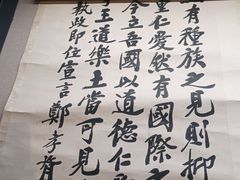 有種族之見則抑
重仁愛然有國際之
今立吾國以道德仁
王道樂土當可見
執政即位宣言鄭孝胥